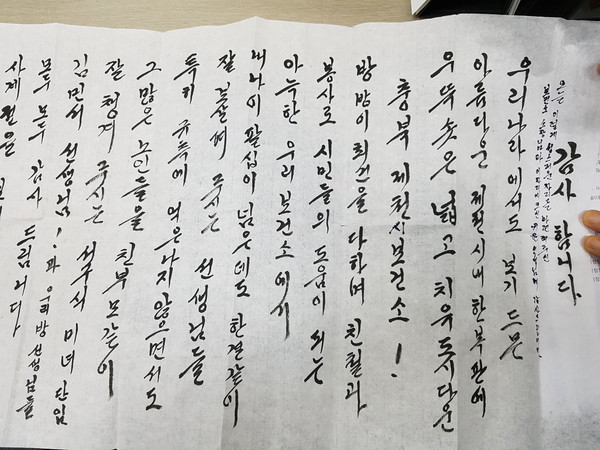 감사 합니다
우리나라에서도 보기 드문
아름다운 제천시내 한복판에
우뚝 솟은 넓고 치유도시다운
충북 제천시보건소!
방방이 최선을 다하며 친절과
봉사로 시민들의 도움이 되는
아늑한 우리 보건소에서
내 나이 팔십이 넘은데도 한결같이
잘 보살펴 주시는 선생님들
특히 않으면서도
그 많은 노인들을 친부모같이
잘 챙겨 주시는 서구식 미녀 단임
김민서 선생님! 과 우리방 선생님들
모두 모두 감사 드립니다